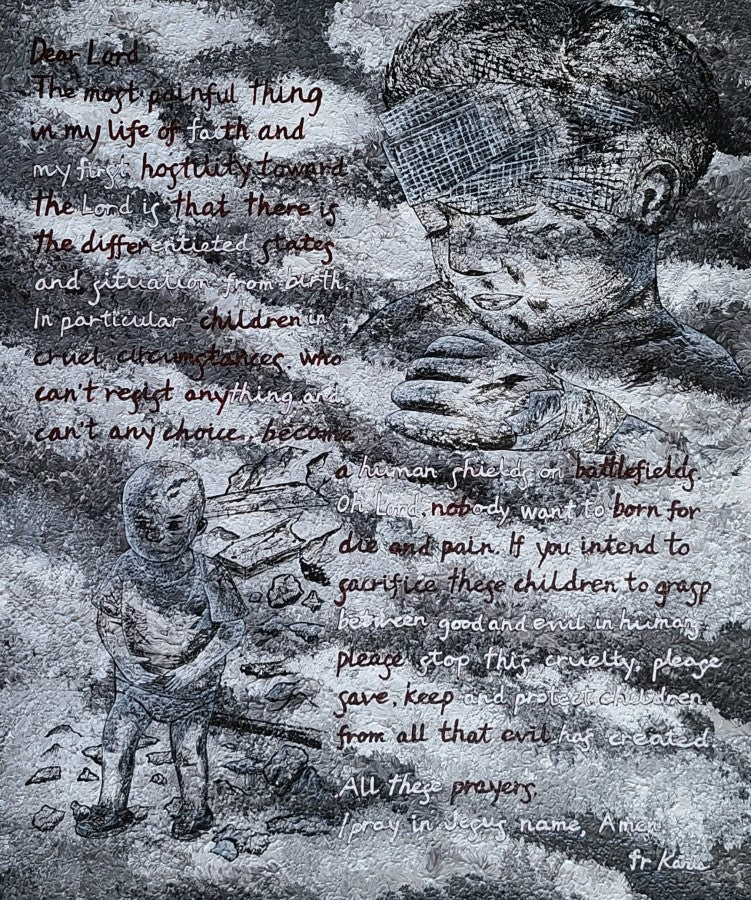 Dear Lord
The most painful thing
in my life of faith and
my first hostuity toward
the Lord is that there is
the differentieted states
and situation from birth.
In particular children in
cruel circumstances who
can't resist anything and
can't any choice, become
a human shields on battlefields
Oh Lord, nobody want to born for
die and pain. If you intend to
sacrifice these children to grasp
between good and evil in human,
please stop this cruelty, please
save, keep and protect children
from all that evil has created.
All these prayers,
I pray in Jesus name, Amen
fr